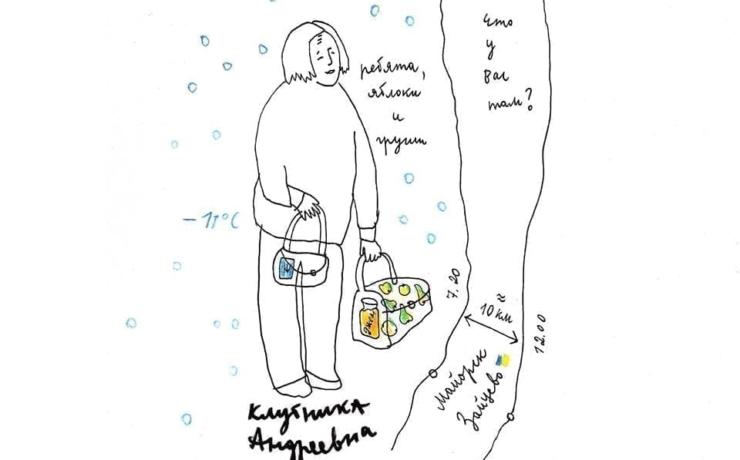 ребята,
яблоки
и
груши
Что
у
вас
там?
-11°C
7.20
≈
10 км
12.00
Майорск
Зайцево
Клубника
Андреевна